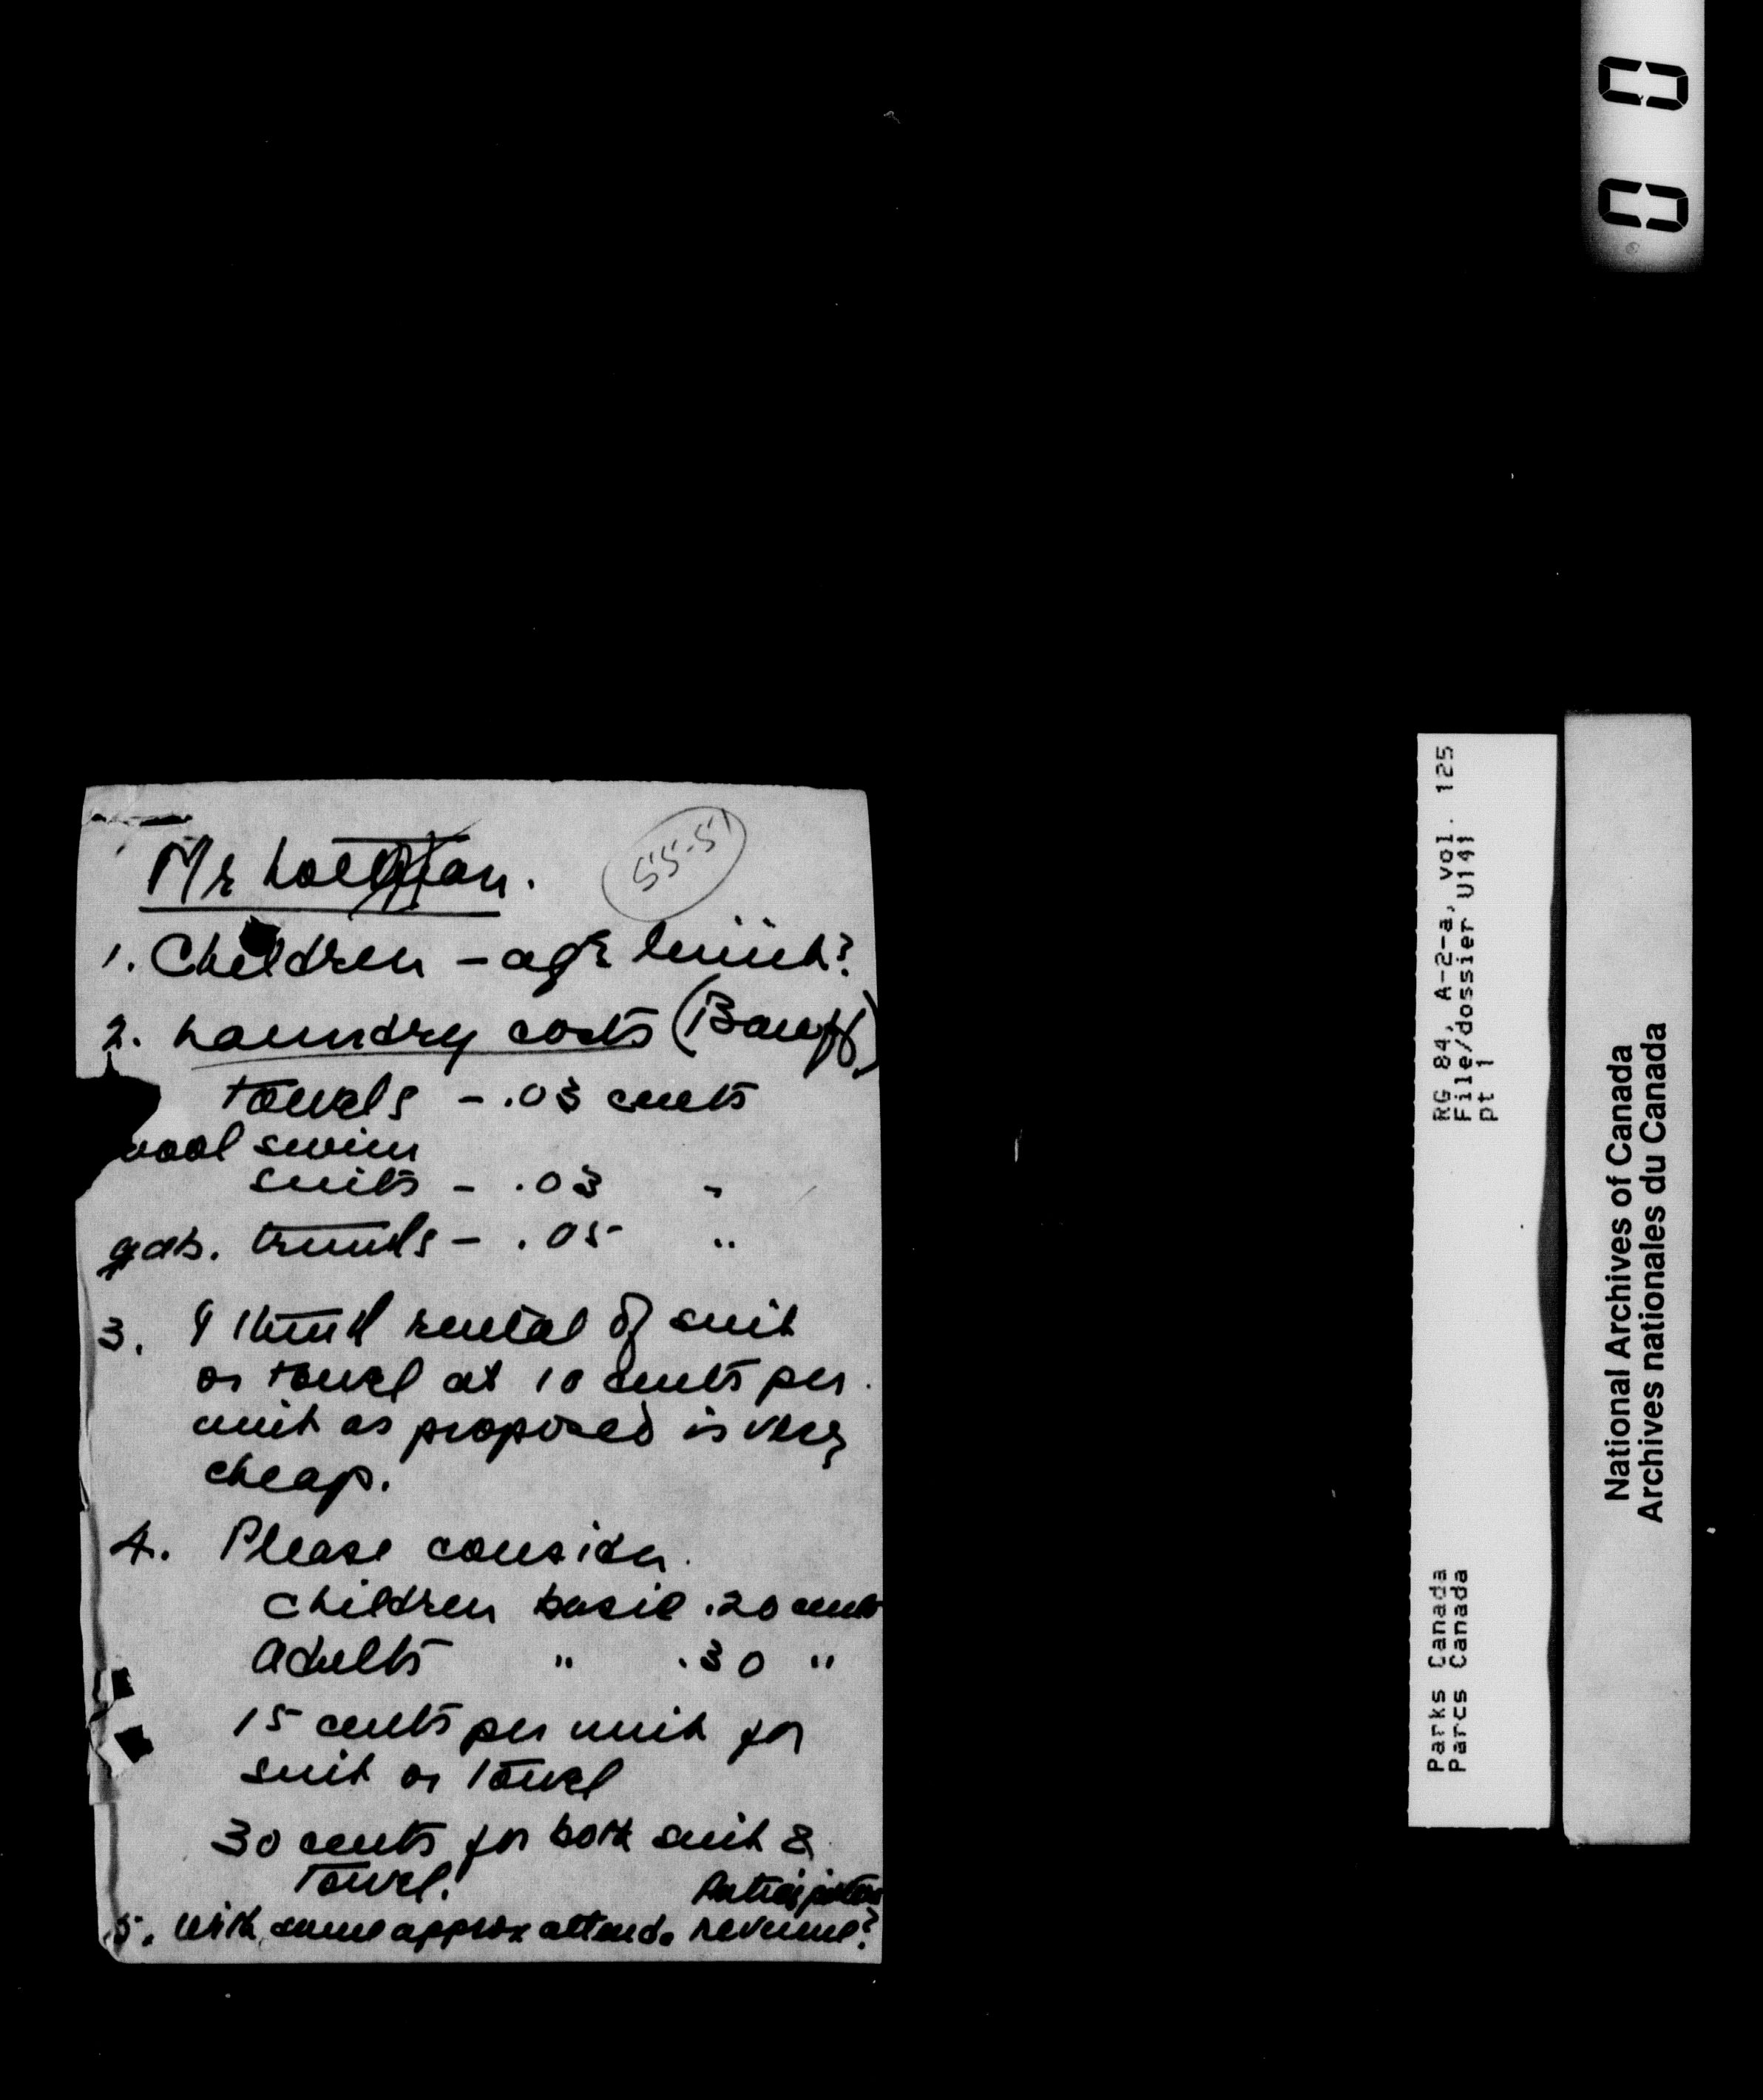 55-51
Mr
1. Children - age limit?
2. Laundry costs (Banff)
towels - .03 cents
wool swim
suits - .03 "
gab. trunks - .05 "
3. I think rental of suit
or towel at 10 cents per
unit as proposed is very
cheap.
4. Please consider
children basic .20 cents
Adults " .30 "
15 cents per unit for
suit or towel
30 cents for both suit &
towel.
Anticipated
5. With same approx attend. revenue?
00
RG 84, A-2-a, vol. 125
File/dossier U141
pt 1
Parks Canada
Parcs Canada
National Archives of Canada
Archives nationales du Canada